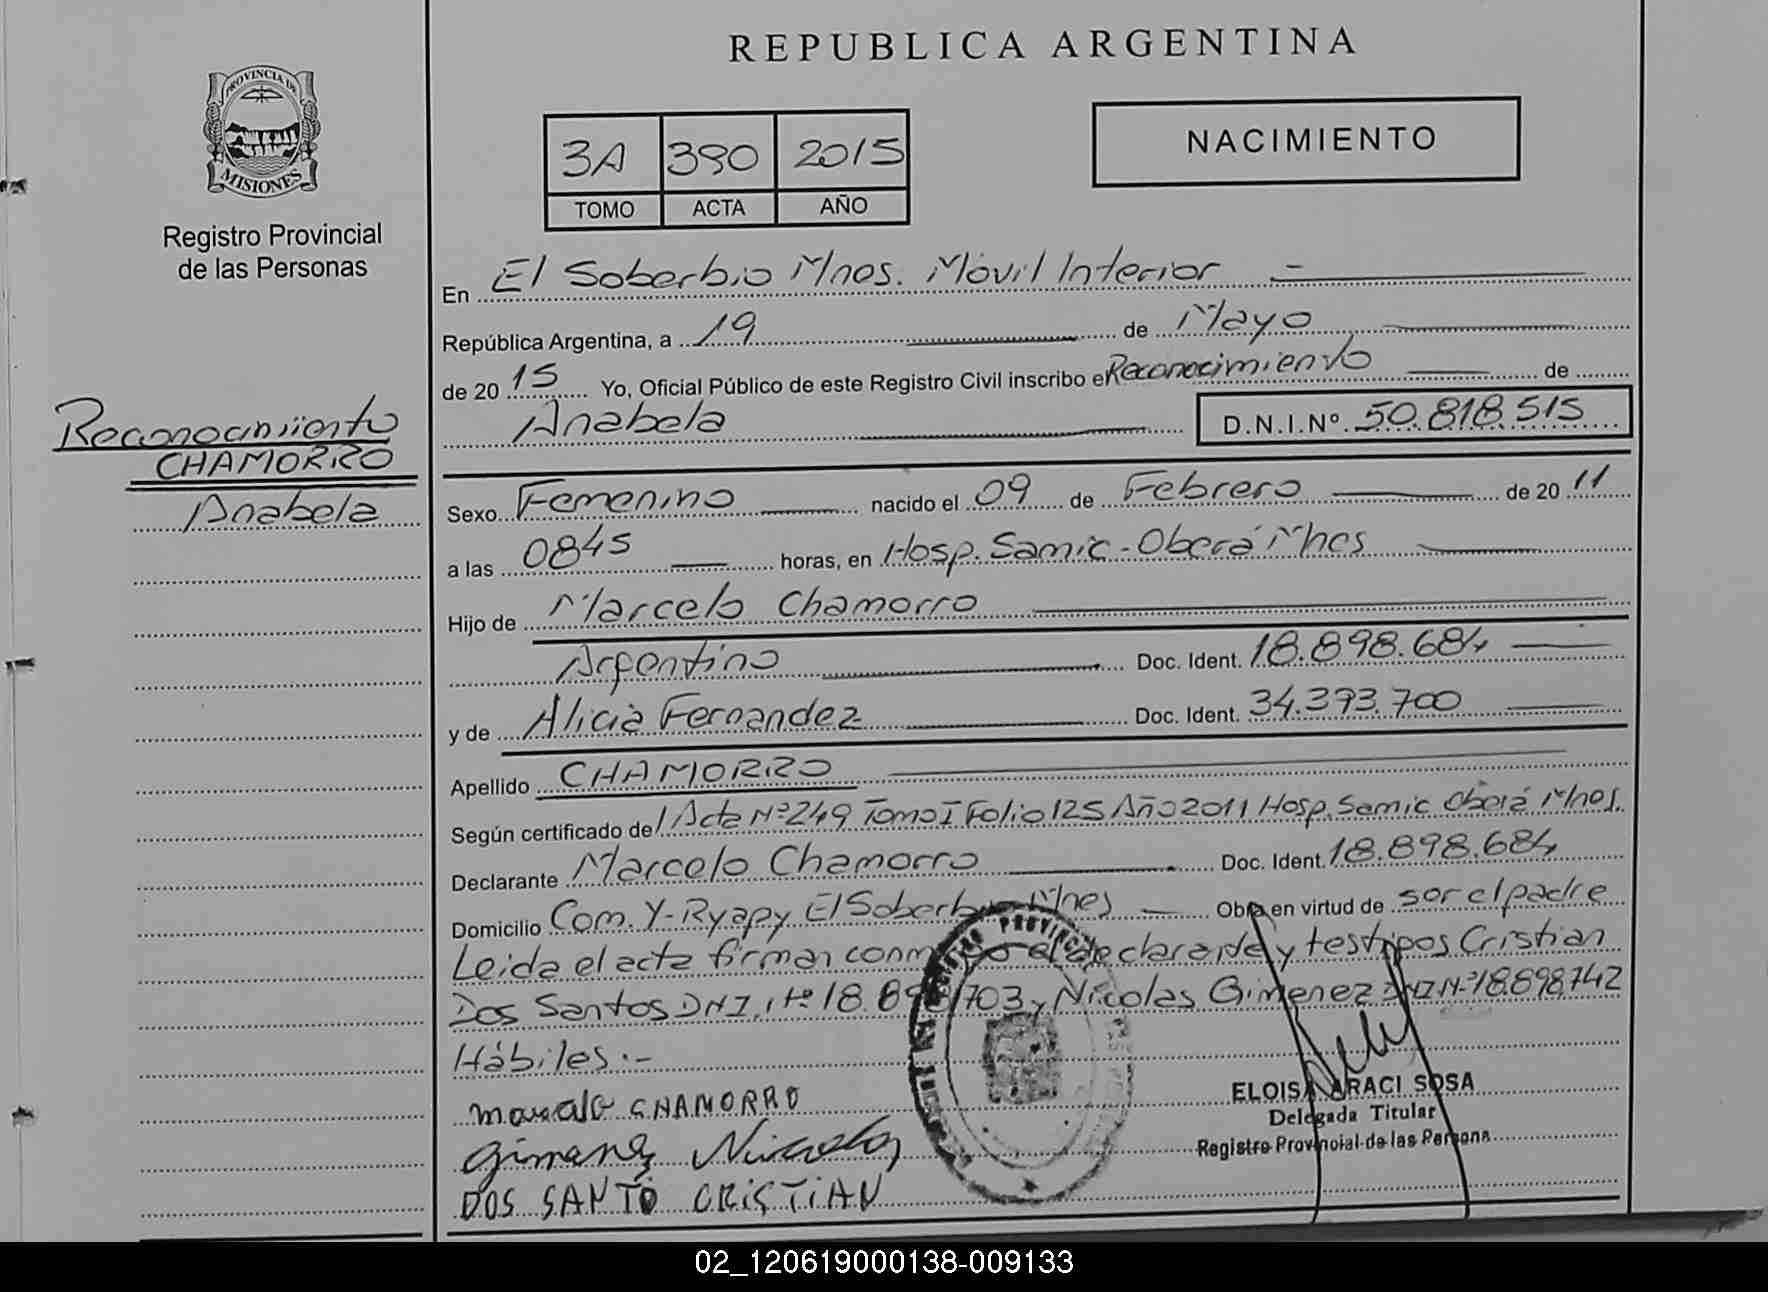 REPUBLICA ARGENTINA
PROVINCIA DE
MISIONES
Registro Provincial
de las Personas
3A 390 2015
TOMO ACTA AÑO
NACIMIENTO
En El Soberbio Mnes. Móvil Interior
República Argentina, a 19 de Mayo
de 20 15 Yo, Oficial Público de este Registro Civil inscribo e Reconocimiento de
Anabela D.N.I.Nº. 50.818.515
Reconocimiento
CHAMORRO
Anabela
Sexo Femenino nacido el 09 de Febrero de 20 11
a las 0845 horas, en Hosp. Samic - Oberá Mnes
Hijo de Marcelo Chamorro
Argentino Doc. Ident. 18.898.684
y de Alicia Fernandez Doc. Ident. 34.393.700
Apellido CHAMORRO
Según certificado de Acta Nº 249 Tomo I Folio 125 Año 2011 Hosp. Samic Oberá Mnes.
Declarante Marcelo Chamorro Doc. Ident. 18.898.684
Domicilio Com. Y-Ryapy El Soberbio Mnes Obra en virtud de ser el padre
Leida el acta firman el declarante y testigos Cristian
Dos Santos DNI. Nº 18.898.703 y Nicolas Gimenez DNI Nº 18.898.742
Hábiles.-
Marcelo CHAMORRO
Gimenez Nicolas
DOS SANTO CRISTIAN
ELOISA ARACI SOSA
Delegada Titular
Registro Provincial de las Persona
02_120619000138-009133